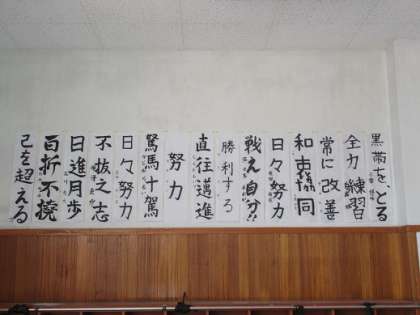 黒帯を、とる
全力練習
常に改善
和衷協同
日々努力
戦え自分!!
勝利する
直往邁進
努力
駑馬十駕
日々努力
不抜之志
日進月歩
百折不撓
己を超える